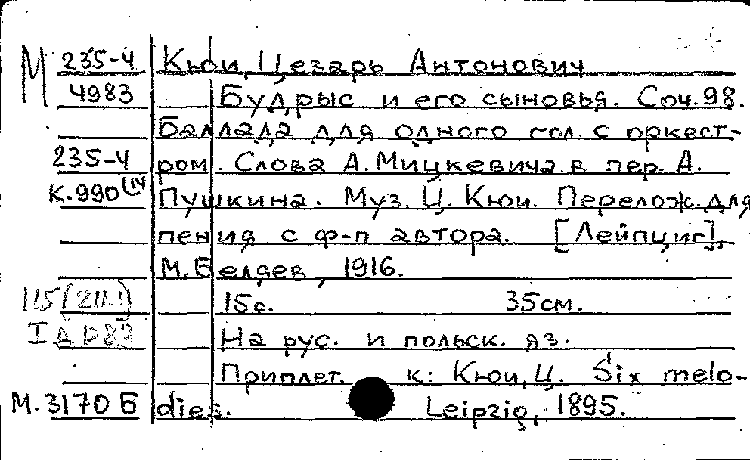 М 235-4 Кюи, Цезарь Антонович
4983 Будрыс и его сыновья. Соч. 98.
Баллада для одного гол. с оркест-
235-4 ром. Слова А. Мицкевича в пер. А.
К.990 Пушкина. Муз. Ц. Кюи. Перелож. для
пения с ф-п автора. [Лейпциг],
М. Беляев, 1916.
15с. 35см.
На рус. и польск. яз.
Приплет. к: Кюи, Ц. Six melo-
М.3170 Б dies. Leipzig, 1895.